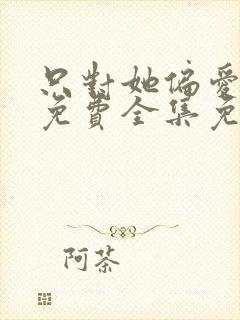 只對她偏愛
免費全集免
阿茶